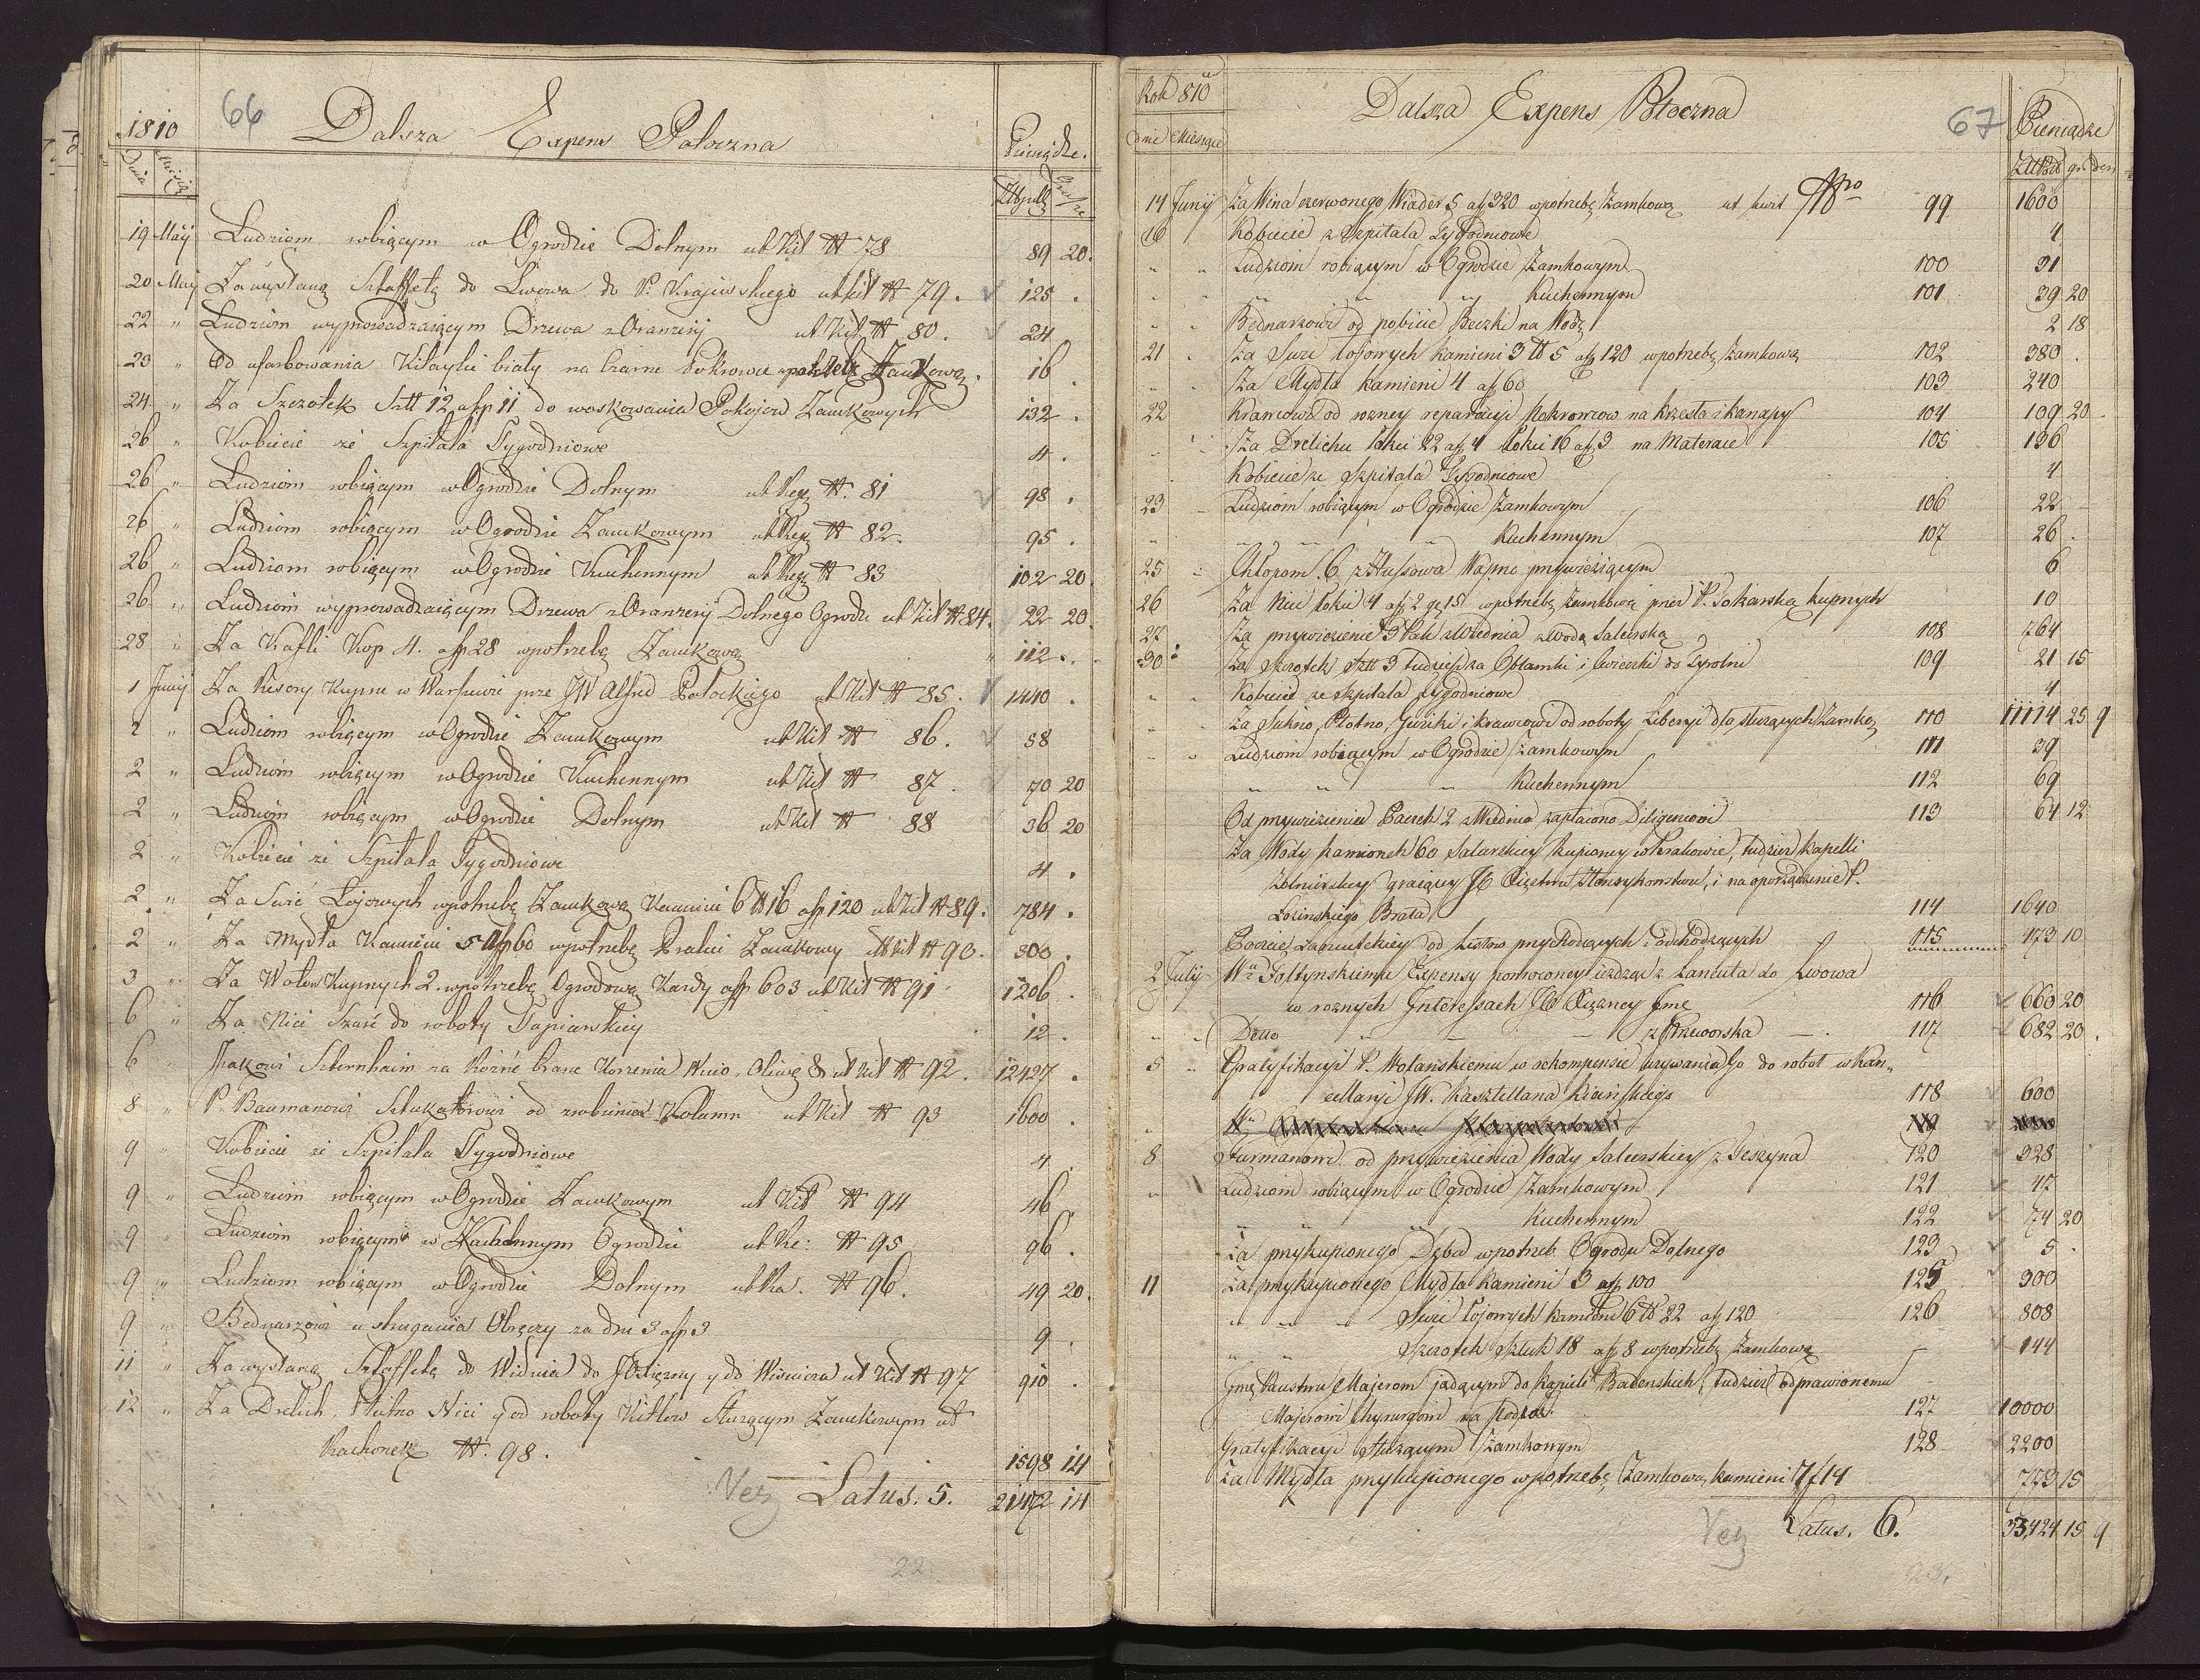 66
1810 Dalsza Expens Potoczna Pieniądze.
Dnia Miesiąc Złłpolls Grosze
19 Maij Ludziom robiącym w Ogrodzie Dolnym ut Kit # 78 89 20.
20 Maij Za wysłaną Sztaffetę do Lwowa do P. Krajewskiego ut kit # 79. 125 .
22 " Ludziom wyprowadzaiącym Drzewa z Oranżerij ut Kit # 80. 24
23 " Od ufarbowania Kitayki biały na Czarne Pokrowce 16 .
24 " Za Szczotek Sztt 12 afp 11 do woskowania Pokojow Zamkowych 132 .
26 " Kobiecie ze Szpitala Tygodniowe 4 .
26 " Ludziom robiącym w Ogrodzie Dolnym ut Reg #. 81 98 .
26 " Ludziom robiącym w Ogrodzie Zamkowym ut Reg # 82. 95 .
26 " Ludziom robiącym w Ogrodzie Kuchennym ut Reg # 83 102 20.
26 " Ludziom wyprowadzaiącym Drzewa z Oranżerij Dolnego Ogrodu ut Kit # 84. 22 20.
28 " Za Kafli Kop 4. afp 28 wpotrzebę Zamkową 112 . .
1 Junij Za Resory Kupne w Warszawie prze JW Alfred Potockiego ut Kit # 85. 1440 .
2 " Ludziom robiącym w Ogrodzie Zamkowym ut Kit # 86. 38
2 " Ludziom robiącym w Ogrodzie Kuchennym ut Kit # 87. 70 20
2 " Ludziom robiącym w Ogrodzie Dolnym ut Kit # 88 36 20
2 " Kobiecie ze Szpitala Tygodniowe 4 .
2 " Za Swić Łojowych wpotrzebę Zamkową Kamieni 6 ℔ 16 afp 120 ut Kit # 89. 784 .
2 " Za Mydła Kamieni 5 afp 60 wpotrzebę Pralni Zamkowy ut kit # 90. 300 .
3 " Za Wołow Kupnych 2. wpotrzebę Ogrodową Kazdy afp 603 ut Kit # 91 1206 .
6 " Za Nici Szare do roboty Tapicerskiey 12 .
6 " Jzakowi Szternhaim za Różné brane Korzenia Wino, Oliwę & ut kit # 92. 12427 .
8 " P. Baumanowi Sztukatorowi od zrobienia Kolumn ut Kit # 93 1600 .
9 " Kobiecie ze Szpitala Tygodniowe 4
9 " Ludziom robiącym w Ogrodzie Zamkowym ut Kit # 94 46
9 Ludziom robiącym w Kuchennym Ogrodzie ut Kt: # 95 96 .
9 " Ludziom robiącym w Ogrodzie Dolnym ut Kt. # 96. 49 20.
9 " Bednarzowi u strugania Obręczy za dni 3 afp 3 9 .
11 " Za wysłaną Sztaffetę do Widnia do JO Xiężny y do Wiśnicza ut Kit # 97 910 .
12 " Za Drelich, Płutno Nici y od roboty Kitlow Służącym Zamkowym ut
Rachonek #. 98. 1598 14
Latus. 5. 21472 14
22
67
Rok 810 Dalsza Expens Ptoczna Pieniądze
dnie Miesiące ZłłPol gr: den
14 Junij Za Wina czerwonego Wiader 5 afp 320 wpotrzebę Zamkową ut kwit Nro 99 1600
16 Kobiecie z Szpitala Tygodniowe 4
" " Ludziom robiącym w Ogrodzie Zamkowym 100 31
" " " " Kuchennym 101 39 20
" " Bednarzowi od pobicie Beczki na Wodę 2 18
21 . Za Swic łojowych kamieni 3 ℔ 5 afp 120 wpotrzebę Zamkową 102 380 .
" " Za Mydła kamieni 4 af 60 103 240
22 Krawcowi od rozney reparacyi Pokrowcow na krzesła i kanapy 104 109 20
" " Za Drelichu łokci 22 af 4 łokci 16 af 3 na Materace 105 136
Kobiecie ze Szpitala Tygodniowe 4
23 Ludziom robiącym w Ogrodzie Zamkowym 106 22
" " " " Kuchennym 107 26 .
25 Chłopom 6 z Hussowa Wapno przywożącym 6
26 Za Nici łokci 4 af 2 gr 15 wpotrzebę Zamkową przez P. Tokarską kupnych 10
27 Za przywiezienie 3 Pak z Wiednia z Wodą Salcerską 108 764
30 Za Szczotek Sztt 3 tudzież za Obłamki i Cwieczki do Tyrolni 109 21 15
" " Kobiecie ze szpitala tygodniowe 4
" " Za Sukno, Płotno, Guziki i krawcowi od roboty Liberyi dla służących Zamko. 110 11114 25 9
" " Ludziom robiącym w Ogrodzie Zamkowym 111 39
" " " Kuchennym 112 69
Od przywiezienia Paczek 2 z Wiednia zapłacono Diligensowi 113 64 12
Za Wody kamionek 60 Salcerskiey kupioney w Krakowie, tudzież kapelli
Żołnierskiey graiącey JO Xięstwu Henrykowstwu, i na oporządzenie P.
Łosinskiego Brata 114 1640
Poczcie Łancutskiey od Listow przychodzących i odchodzących 115 173 10
2 July Wu Foltynskiemu Expensy ponowoney ieżdżąc z Łancuta do Lwowa
w roznych Interessach JO Xiężney Jmę 116 660 20
" " Detto z Przeworska 117 682 20.
5 " Gratyfikacyi P. Wolanskiemu w rekompensie używania Go do robot w Kan-
cellaryi JW. Kasztellana Kicińskiego 118 600
8 Furmanowi od przywiezienia Wody Salcerskiey z Teszyna 120 328
" Ludziom robiącym w Ogrodzie Zamkowym 121 47
" " " Kuchennym 122 74 20
Za przykupionego Dęba wpotrzeb Ogrodu Dolnego 123 5 .
11 Za przykupionego Mydła kamieni 3 afp 100 125 300
" " " Swic łojowych kamieni 6 ℔ 22 af 120 126 808
" " Szczotek Sztuk 18 af 8 wpotrzebę Zamkową 144
Jmę Państwu Majerom jadącym do kąpieli Badenskich, tudzież odprawionemu
Majerowi Chyrurgowi na Podroż 127 10000
Gratyfikacyi Służącym Zamkowym 128 2200
Za Mydła przykupionego wpotrzebę Zamkową kamieni 773 15
Latus. 6. 33,424 15 9
23.